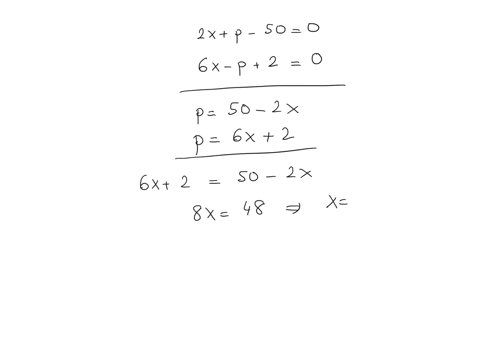 2x + p - 50 = 0
6x - p + 2 = 0
p = 50 - 2x
p = 6x + 2
6x + 2 = 50 - 2x
8x = 48 ⇒ x =